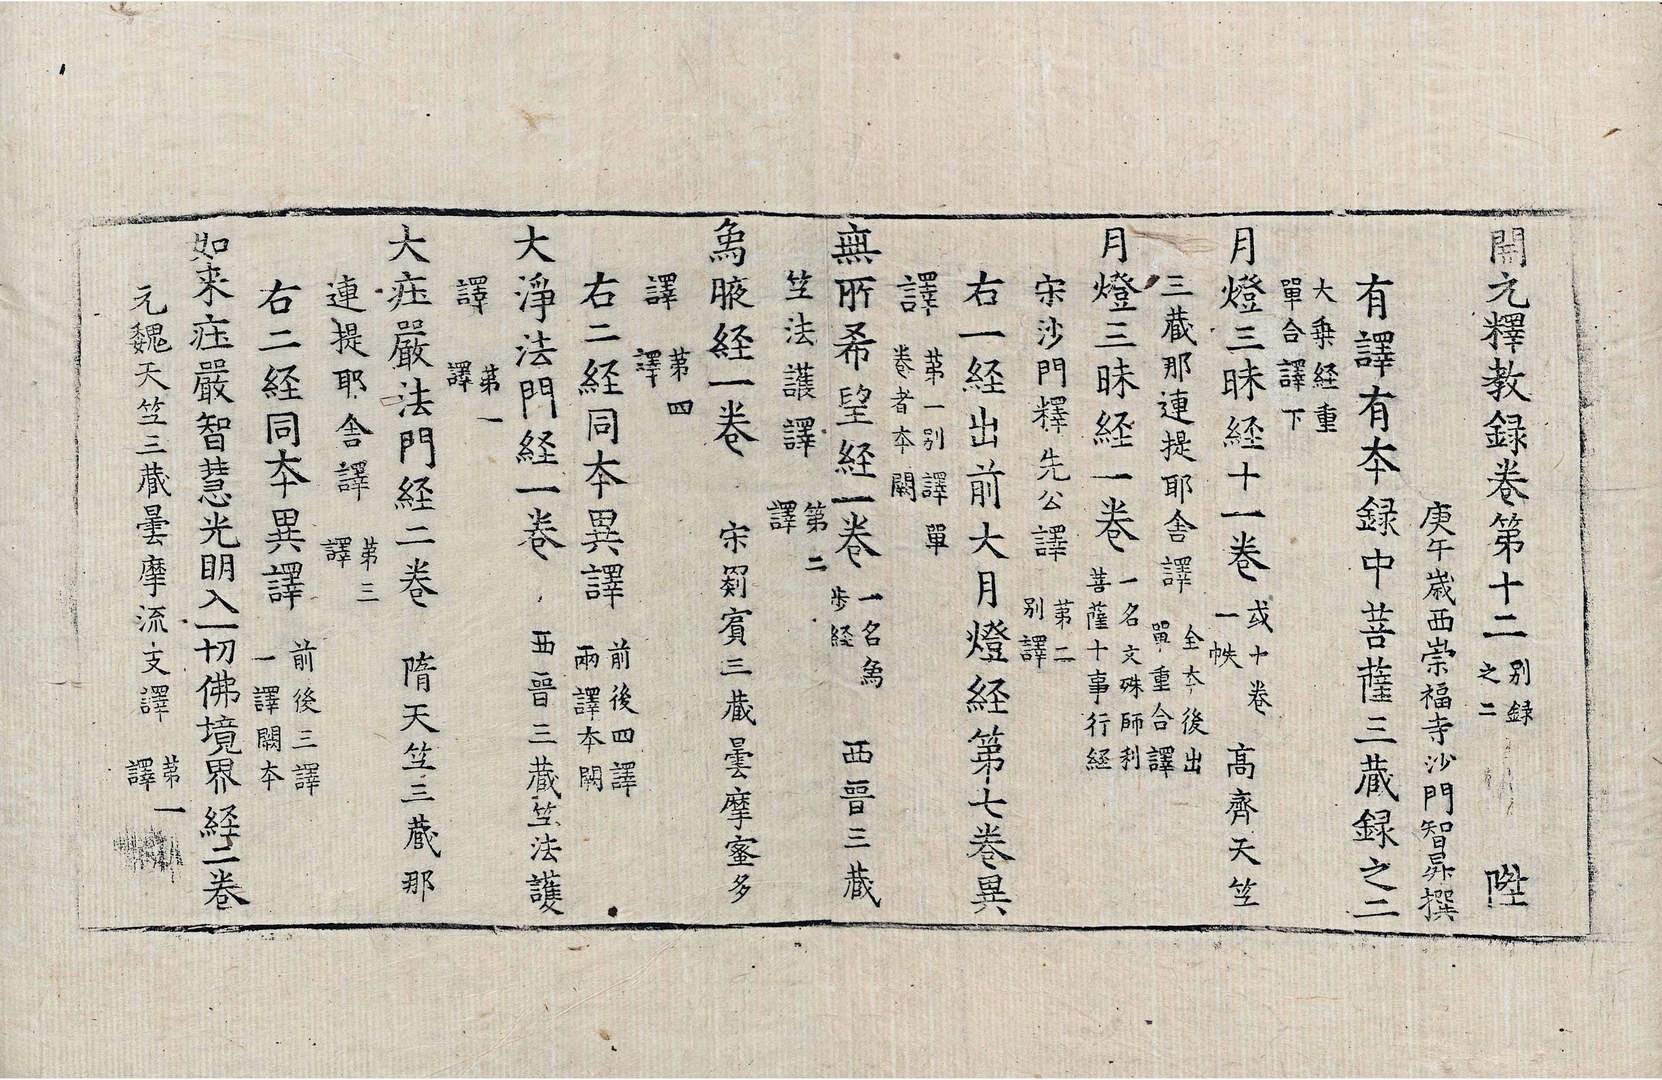 開元釋教録卷第十二 別録之二 陞
庚午歳西崇福寺沙門智昇撰
有譯有本録中菩薩三蔵録之二
大乗経重單合譯下
月燈三昧経十一卷 或十卷一帙 高齊天竺
三蔵那連提耶舎譯 全本後出單重合譯
月燈三昧経一卷 一名文殊師利菩薩十事行経
宋沙門釋先公譯 第二別譯
右一経出前大月燈経第七卷異
譯 第一別譯單卷者本闕
無所希望経一卷 一名象歩経 西晉三蔵
竺法護譯 第二譯
象腋経一卷 宋罽賓三蔵曇摩蜜多
譯 第四譯
右二経同本異譯 前後四譯兩譯本闕
大淨法門経一卷 西晉三蔵竺法護
譯 第一譯
大庄嚴法門経二卷 隋天竺三蔵那
連提耶舎譯 第三譯
右二経同本異譯 前後三譯一譯闕本
如来庄嚴智慧光明入一切佛境界経二卷
元魏天竺三蔵曇摩流支譯 第一譯